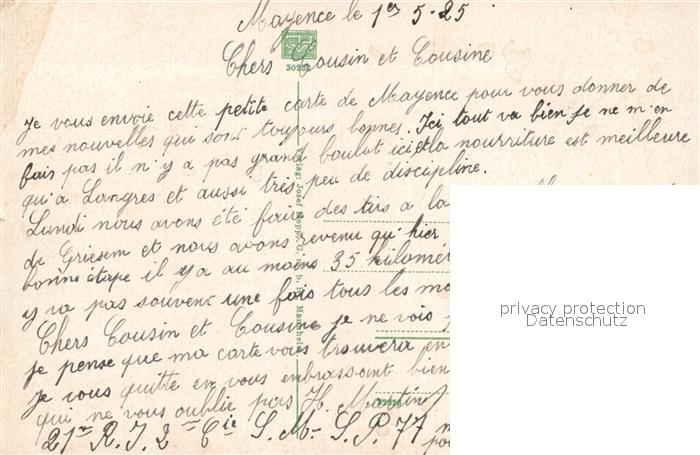 Mayence le 1er 5-25
Chers Cousin et Cousine
30292
je vous envoie cette petite carte de Mayence pour vous donner de
mes nouvelles qui sont toujours bonnes. Ici tout va bien je ne m'en
fais pas il n'y a pas grand boulot ici et la nourriture est meilleure
qu'a Langres et aussi tris peu de discipline.
Lundi nous avons été faire des tirs a la
de Griesem et nous avons revenu qu'hier
bonne étape il y a au moins 35 kilomé
y va pas souvent une fois tous les mo
Chers Cousin et Cousine je ne vois
je pense que ma carte vous trouvera en
Je vous quitte en vous embrassant bien
qui ne vous oublie pas H. Martin
21e R.I. 2e Cie S.M. S.P. 77
Verlag: Josef Hopp, G. m. b. H. Mannheim
privacy protection
Datenschutz